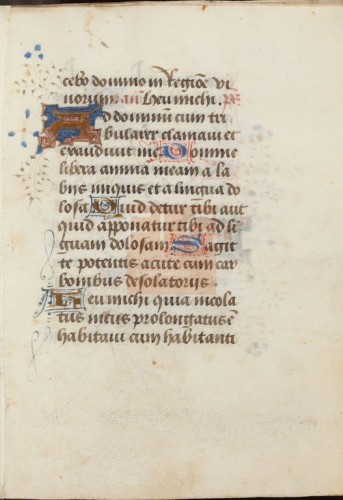 cebo domino in Regiõe vi
uorum. añ. Heu michi. ps
Ad dominum cum tri
bularer clamaui et
exaudiuit me Domine
libera anima meam a la
biis iniquis et a lingua do
losa Quid detur tibi aut
quid apponatur tibi ad li
guam dolosam Sagit
te potentis acute cum car
bonibus desolatoriis
Heu michi quia incola
tus meus prolongatus ẽ
habitaui cum habitanti